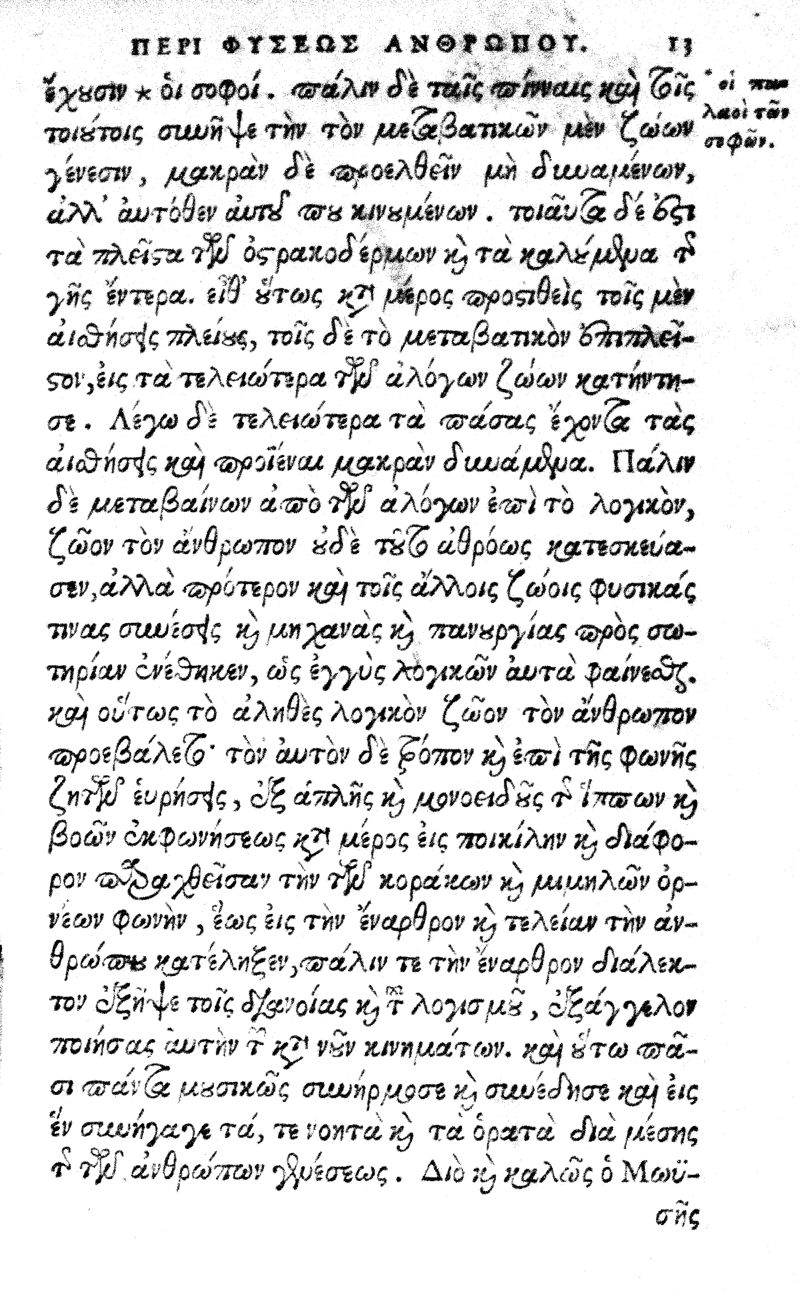 ΠΕΡΙ ΦΥΣΕΩΣ ΑΝΘΡΩΠΟΥ. 13
ἔχουσιν * ὁι σοφοί. πάλιν δὲ ταῖς πίνναις καὶ τοῖς
* οἱ πα-
λαιοὶ τῶν
σοφῶν.
τοιούτοις συνῆψε τὴν τὸν μεταβατικῶν μὲν ζώων
γένεσιν, μακρὰν δὲ προελθεῖν μὴ δυναμένων,
ἀλλ' ἀυτόθεν ἀυτοῦ που κινουμένων. τοιαῦτα δέ ἐστι
τὰ πλεῖστα τῶν ὀστρακοδέρμων κὶ τὰ καλούμενα τῆς
γῆς ἔντερα. εἶθ' οὕτως κατὰ μέρος προστιθεὶς τοῖς μὲν
ἀισθήσεις πλείους, τοῖς δὲ τὸ μεταβατικὸν ἐπιπλεῖ-
στον, ἐις τὰ τελειώτερα τῶν ἀλόγων ζώων κατήντη-
σε. Λέγω δὲ τελειώτερα τὰ πάσας ἔχοντα τὰς
ἀισθήσεις καὶ προϊέναι μακρὰν δυνάμενα. Πάλιν
δὲ μεταβαίνων ἀπὸ τῶν ἀλόγων ἐπὶ τὸ λογικὸν,
ζῶον τὸν ἄνθρωπον οὐδὲ τοῦτο ἀθρόως κατεσκεύα-
σεν, ἀλλὰ πρότερον καὶ τοῖς ἄλλοις ζώοις φυσικάς
τινας συνέσεις κὶ μηχανὰς κὶ πανουργίας πρὸς σω-
τηρίαν ἐνέθηκεν, ὡς ἐγγὺς λογικῶν ἀυτὰ φαίνεσθαι.
καὶ οὕτως τὸ ἀληθὲς λογικὸν ζῶον τὸν ἄνθρωπον
προεβάλετο· τὸν ἀυτὸν δὲ τρόπον κὶ ἐπὶ τῆς φωνῆς
ζητῶν ἑυρήσεις, ἐξ ἁπλῆς κὶ μονοειδοῦς τῆς ἵππων κὶ
βοῶν ἐκφωνήσεως κατὰ μέρος ἐις ποικίλην κὶ διάφο-
ρον παραχθεῖσαν τὴν τῶν κοράκων κὶ μιμηλῶν ὀρ-
νέων φωνὴν, ἕως ἐις τὴν ἔναρθρον κὶ τελείαν τὴν ἀν-
θρώπου κατέληξεν, πάλιν τε τὴν ἔναρθρον διάλεκ-
τον ἐξῆψε τοῖς διανοίας κὶ τοῦ λογισμοῦ, ἐξάγγελον
ποιήσας ἀυτὴν τῶν κατὰ νοῦν κινημάτων. καὶ οὕτω πᾶ-
σι πάντα μουσικῶς συνήρμοσε κὶ συνέδησε καὶ ἐις
ἕν συνήγαγε τά, τε νοητὰ κὶ τὰ ὁρατὰ διὰ μέσης
τῆς τῶν ἀνθρώπων γενέσεως. Διὸ κὶ καλῶς ὁ Μωϋ-
σῆς